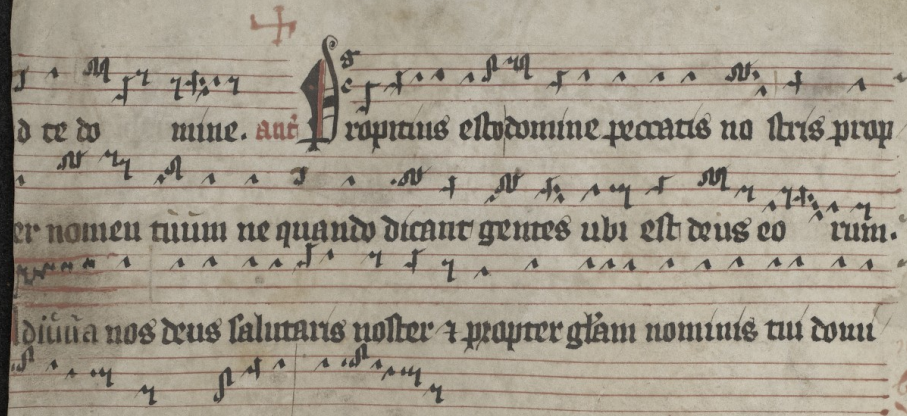 d te do mine. ant Propitius esto domine peccatis no stris prop
er nomen tuum ne quando dicant gentes ubi est deus eo rum.
diuua nos deus salutaris noster ⁊ propter glam nominis tui domi